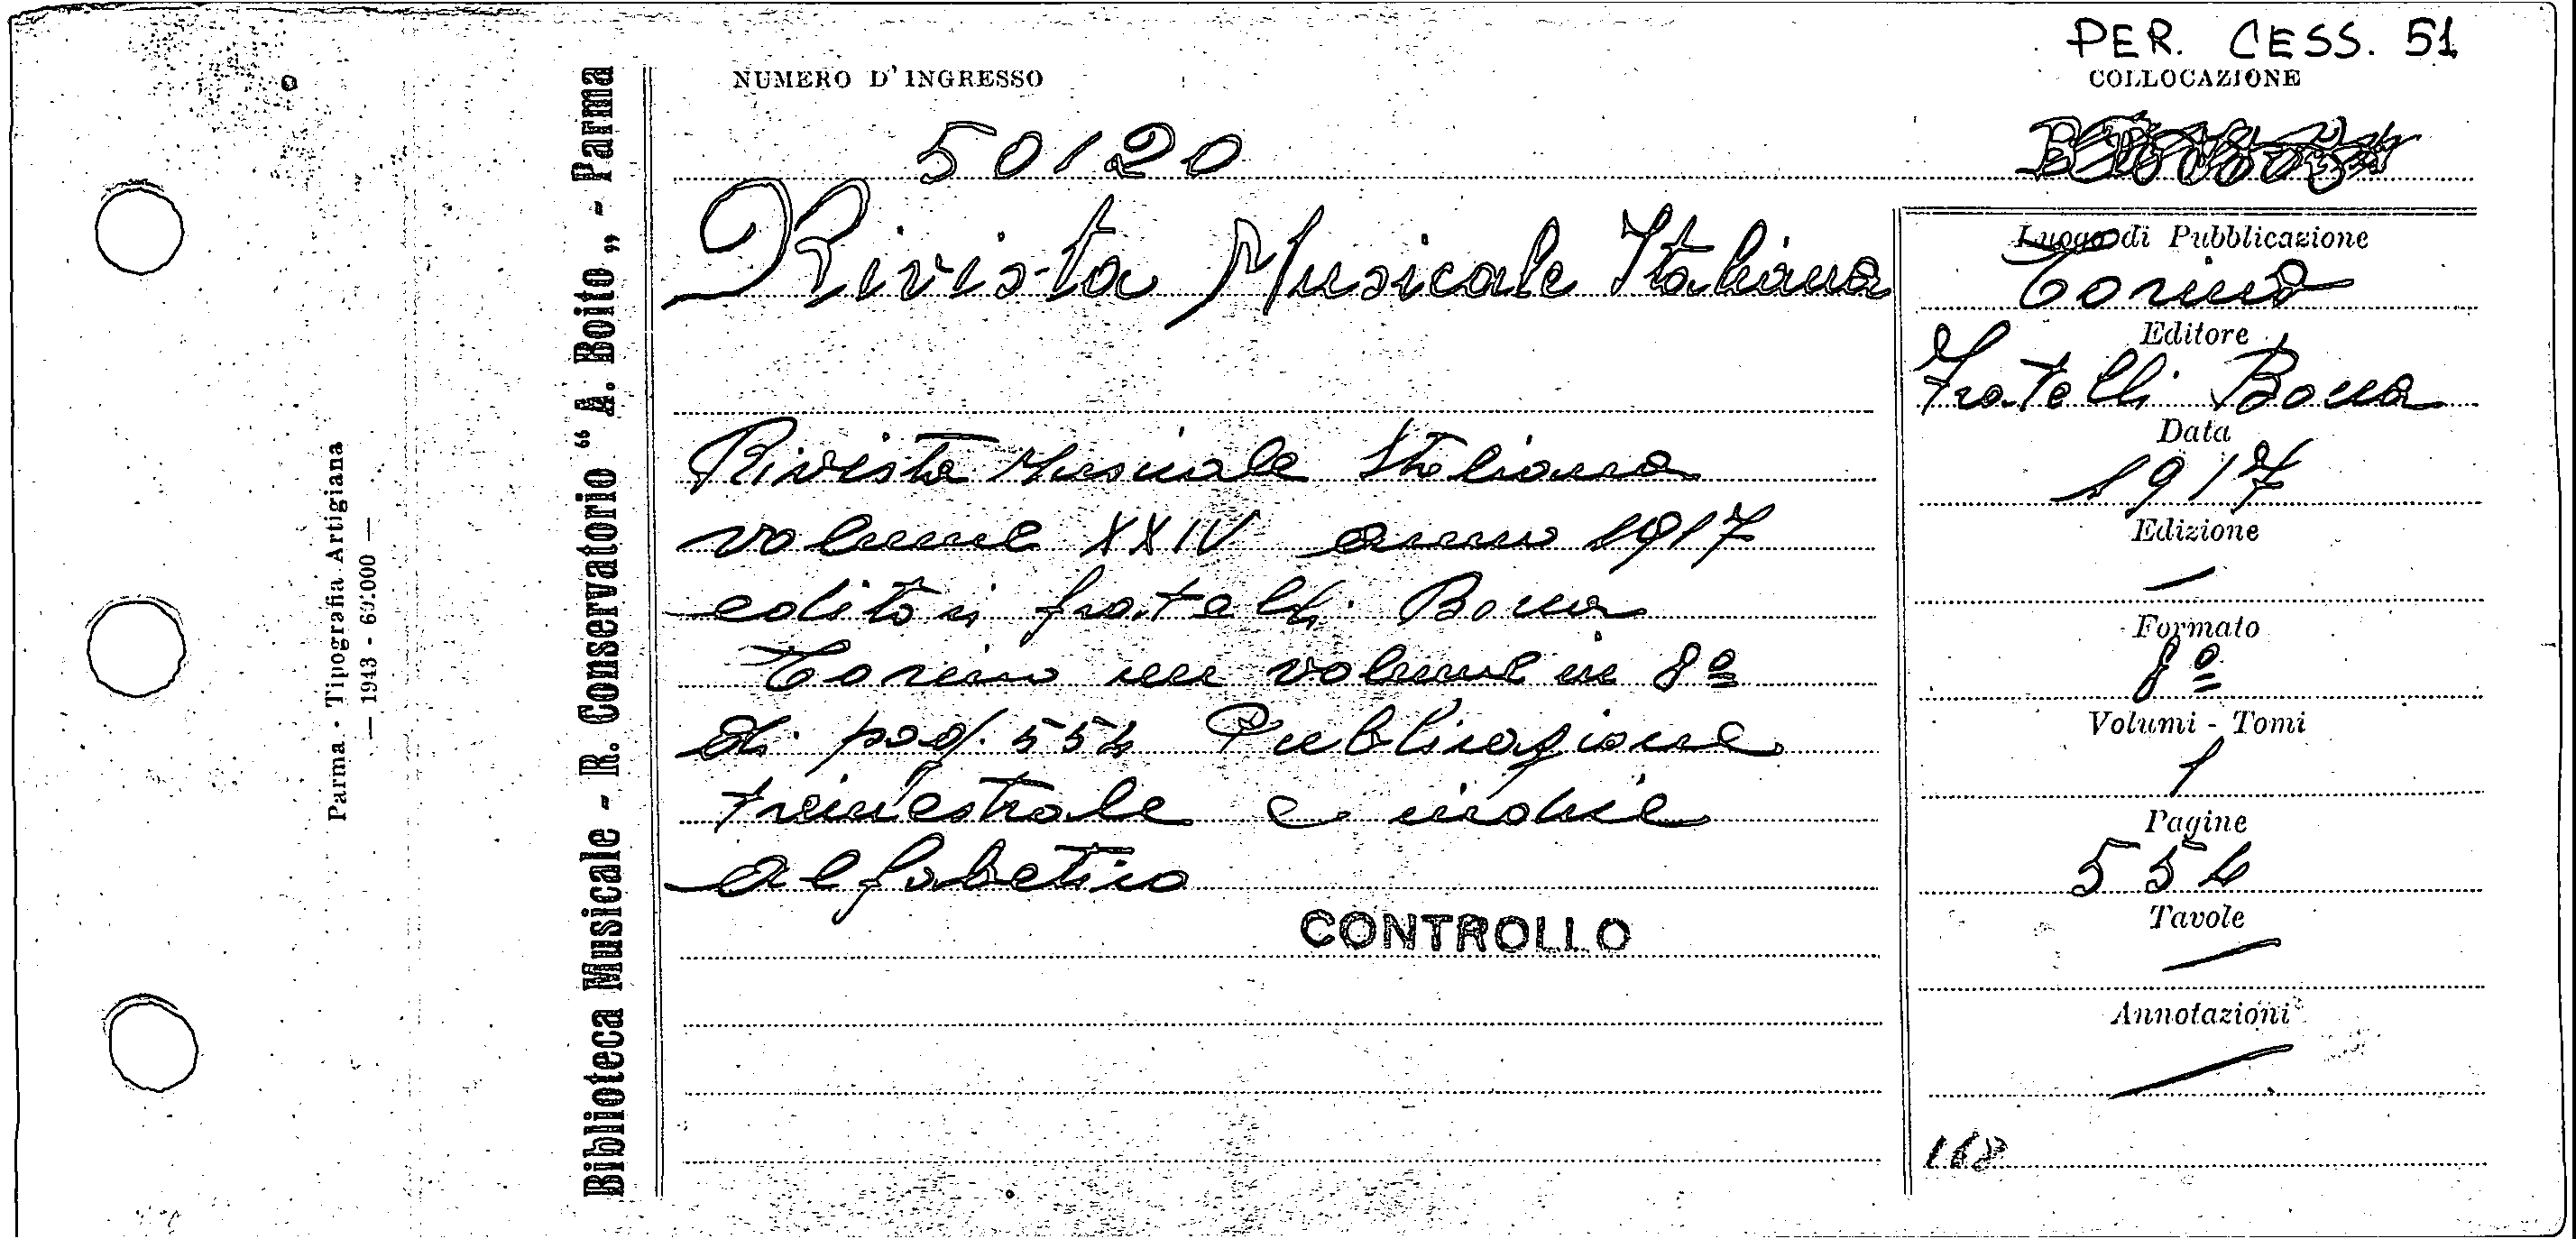 PER. CESS. 51
NUMERO D'INGRESSO
COLLOCAZIONE
50120
Rivista Musicale Italiana
Luogo di Pubblicazione
Torino
Editore
Fratelli Bocca
Data
1917
Edizione
Formato
8º
Volumi - Tomi
1
Pagine
554
Tavole
Annotazioni
Rivista Musicale Italiana
volume XXIV anno 1917
editori fratelli Bocca
Torino un volume in 8º
di pag. 554 Pubblicazione
trimestrale e indice
alfabetico
CONTROLLO
168
Biblioteca Musicale - R. Conservatorio “ A. Boito „ - Parma
Parma - Tipografia Artigiana
— 1943 - 60.000 —